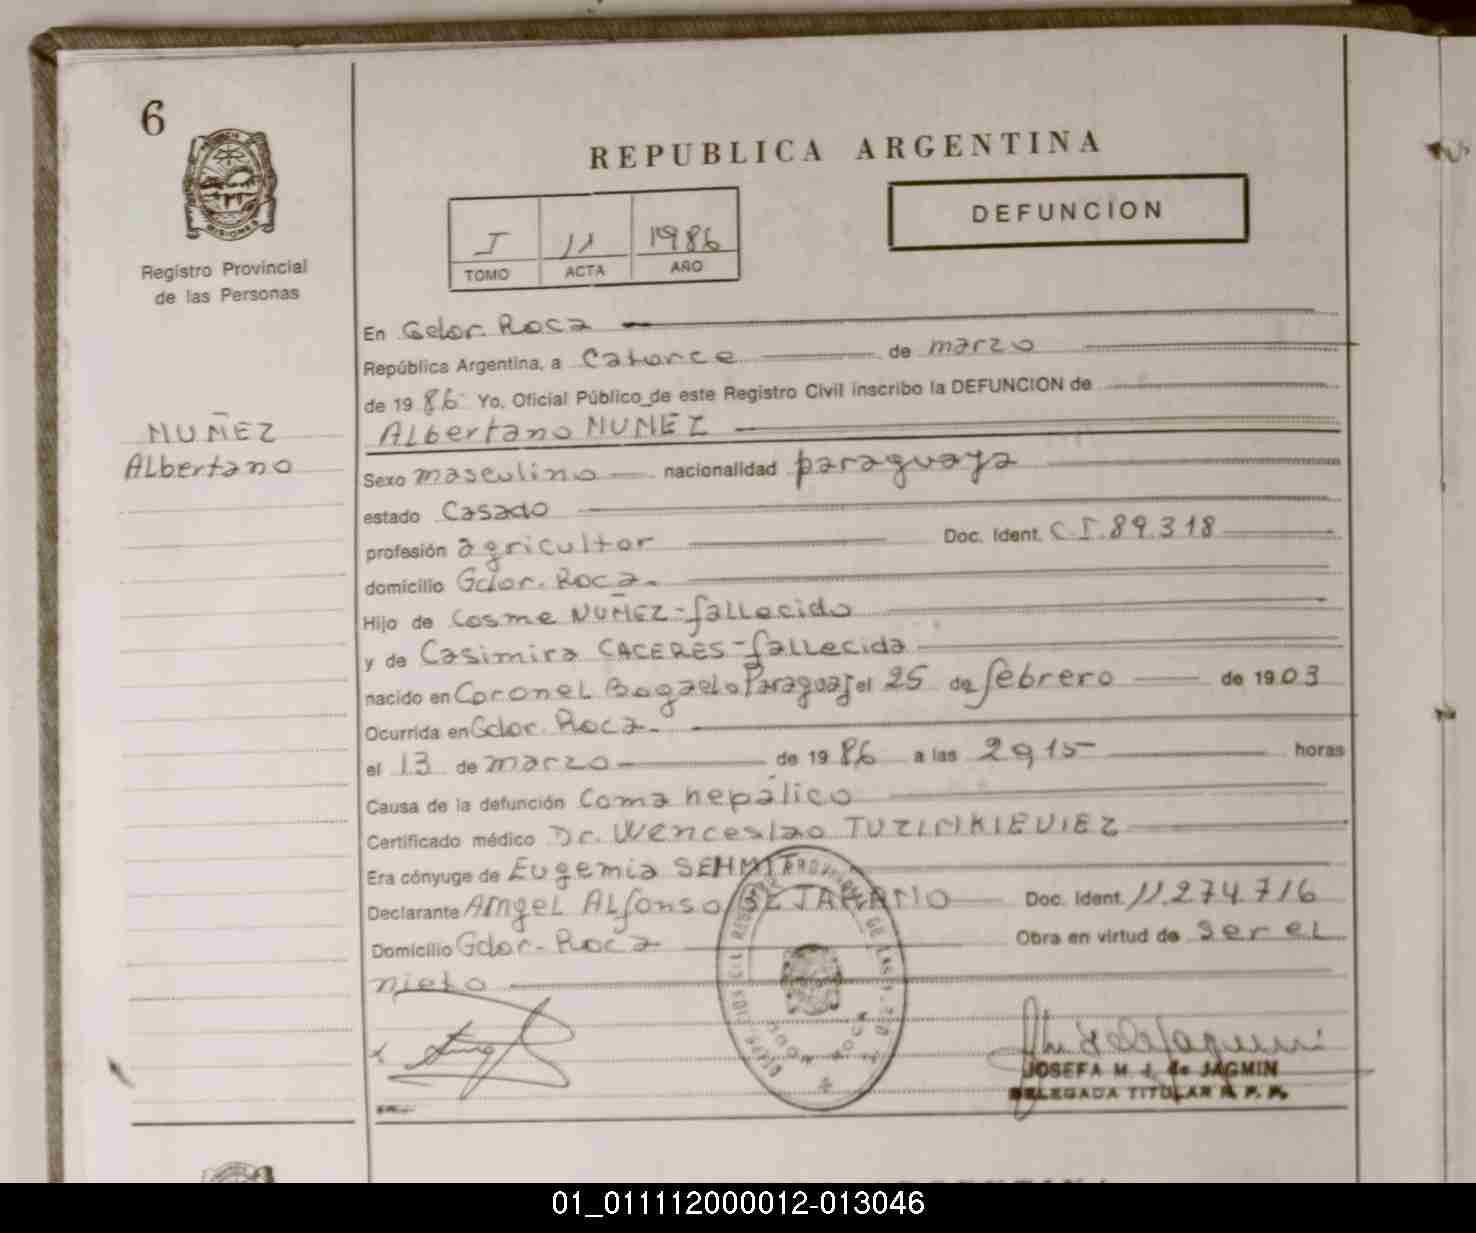 6
MISIONES
Registro Provincial
de las Personas
REPUBLICA ARGENTINA
DEFUNCION
I 11 1986
TOMO ACTA AÑO
NUÑEZ
Albertano
En Gdor. Roca
República Argentina, a Catorce de marzo
de 19 86 Yo, Oficial Público de este Registro Civil inscribo la DEFUNCION de
Albertano NUÑEZ
Sexo masculino nacionalidad paraguaya
estado Casado
profesión agricultor Doc. Ident. C.I. 89.318
domicilio Gdor. Roca.
Hijo de Cosme NUÑEZ-fallecido
y de Casimira CACERES-fallecida
nacido en Coronel Bogado Paraguay el 25 de febrero de 19 03
Ocurrida en Gdor. Roca.
el 13 de marzo de 19 86 a las 2 y 15 horas
Causa de la defunción Coma hepático
Certificado médico Dr. Wenceslao
Era cónyuge de Eugenia
Declarante Angel Alfonso Doc. Ident. 11.274.716
Domicilio Gdor. Roca Obra en virtud de ser el
nieto
JOSEFA M. J. de JAGMIN
DELEGADA TITULAR R. P. P.
01_011112000012-013046